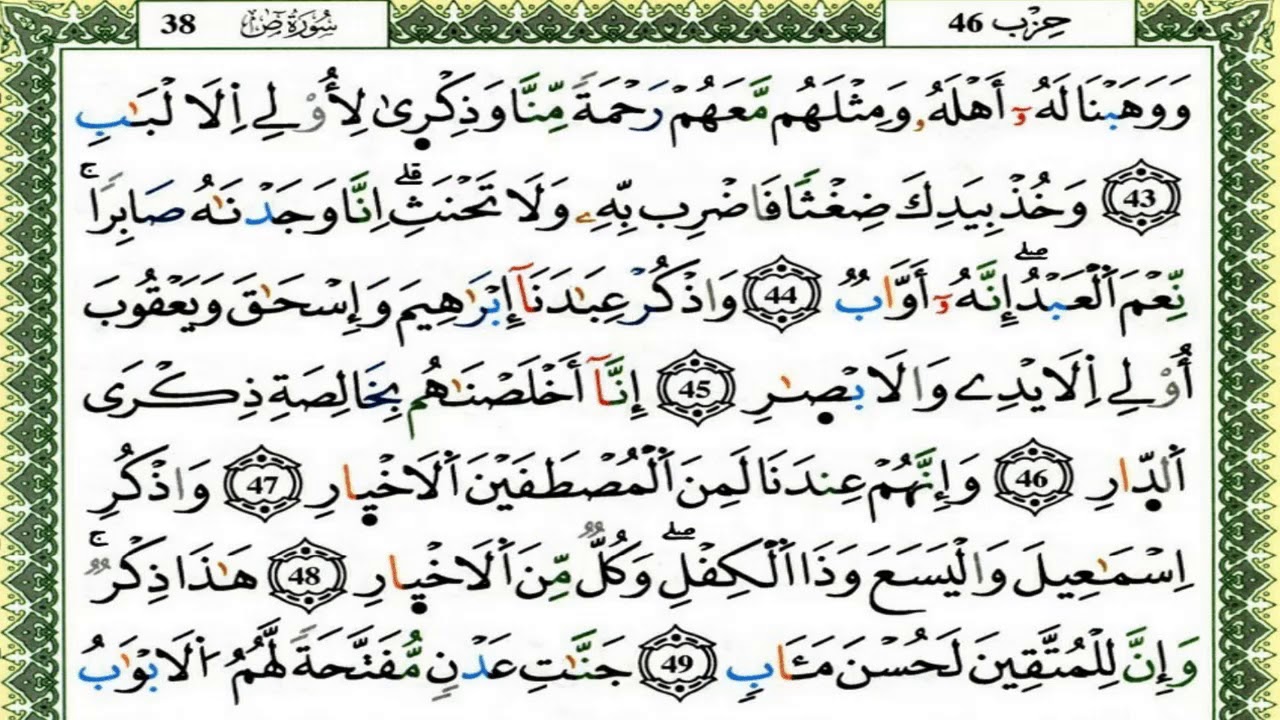 حِزْب 46 سُورَةُ صٓ 38
وَوَهَبْنَا لَهُۥٓ أَهْلَهُۥ وَمِثْلَهُم مَّعَهُمْ رَحْمَةً مِّنَّا وَذِكْرَىٰ لِأُوْلِے اِلَالْبَٰبِ
43 وَخُذْ بِيَدِكَ ضِغْثًا فَاضْرِب بِّهِۦ وَلَا تَحْنَثِۖ اِنَّا وَجَدْنَٰهُ صَابِرًاۚ
نِّعْمَ اَلْعَبْدُۖ إِنَّهُۥٓ أَوَّابٌ 44 وَاذْكُرْ عِبَٰدَنَآ إِبْرَٰهِيمَ وَإِسْحَٰقَ وَيَعْقُوبَ
أُوْلِے اِلَايْدِے وَالَابْصٰ۪رِ 45 إِنَّآ أَخْلَصْنَٰهُم بِخَالِصَةِ ذِكْرَى
اَلدّ۪ارِ 46 وَإِنَّهُمْ عِندَنَا لَمِنَ اَلْمُصْطَفَيْنَ اَلَاخْي۪ارِ 47 وَاذْكُرِ
اِسْمَٰعِيلَ وَالْيَسَعَ وَذَا اَلْكِفْلِۖ وَكُلٌّ مِّنَ اَلَاخْي۪ارِ 48 هَٰذَا ذِكْرٌۚ
وَإِنَّ لِلْمُتَّقِينَ لَحُسْنَ مَـَٔابٍ 49 جَنَّٰتِ عَدْنٍ مُّفَتَّحَةً لَّهُمُ اُلَابْوَٰبُ